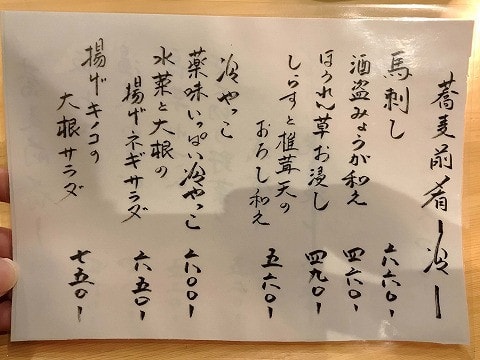 蕎麦前肴ー冷ー
馬刺し 六六〇ー
酒盗みょうが和え 四六〇ー
ほうれん草お浸し 四九〇ー
しらすと椎茸天の
おろし和え 五六〇ー
冷やっこ
薬味いっぱい冷やっこ 六〇〇ー
水菜と大根の
揚げネギサラダ 六五〇ー
揚げキノコの
大根サラダ 七五〇ー